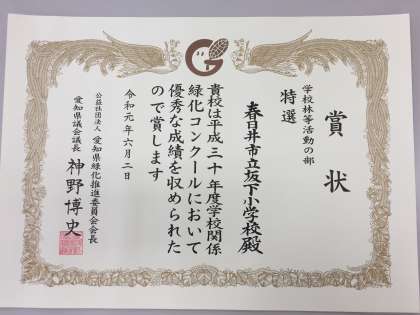 賞状
学校林等活動の部
特選
春日井市立坂下小学校殿
貴校は平成三十年度学校関係
緑化コンクールにおいて
優秀な成績を収められた
ので賞します
令和元年六月二日
公益社団法人 愛知県緑化推進委員会会長
愛知県議会議長 神野博史